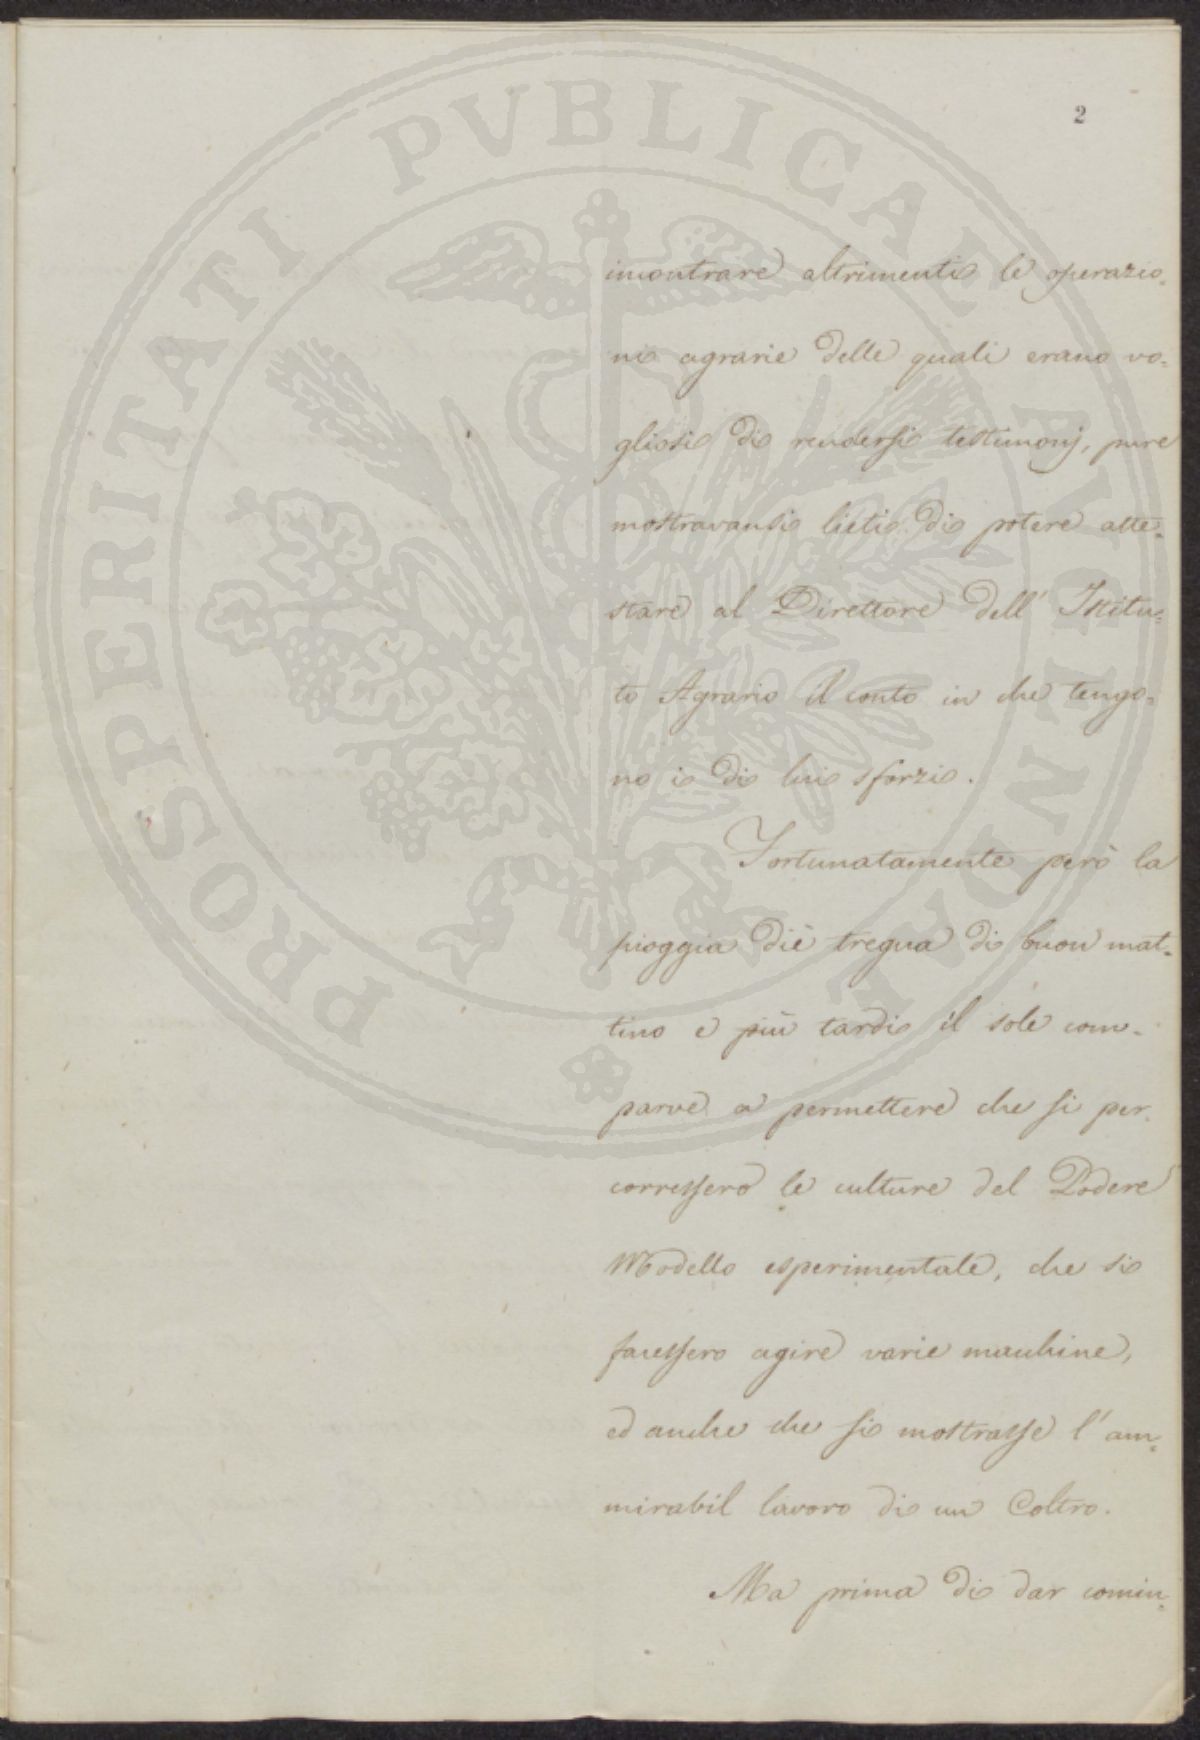 PROSPERITATI PVBLICAE AVGENDAE
2
incontrare altrimenti le operazio-
ni agrarie delle quali erano vo-
gliosi di rendersi testimonj, pure
mostravansi lieti di potere atte-
stare al Direttore dell' Istitu-
to Agrario il conto in che tengo-
no i di lui sforzi.
Fortunatamente però la
pioggia diè tregua di buon mat-
tino e più tardi il sole com-
parve a permettere che si per-
corressero le culture del Podere
Modello esperimentale, che si
facessero agire varie macchine,
ed anche che si mostrasse l'am-
mirabil lavoro di un Coltro.
Ma prima di dar comin-